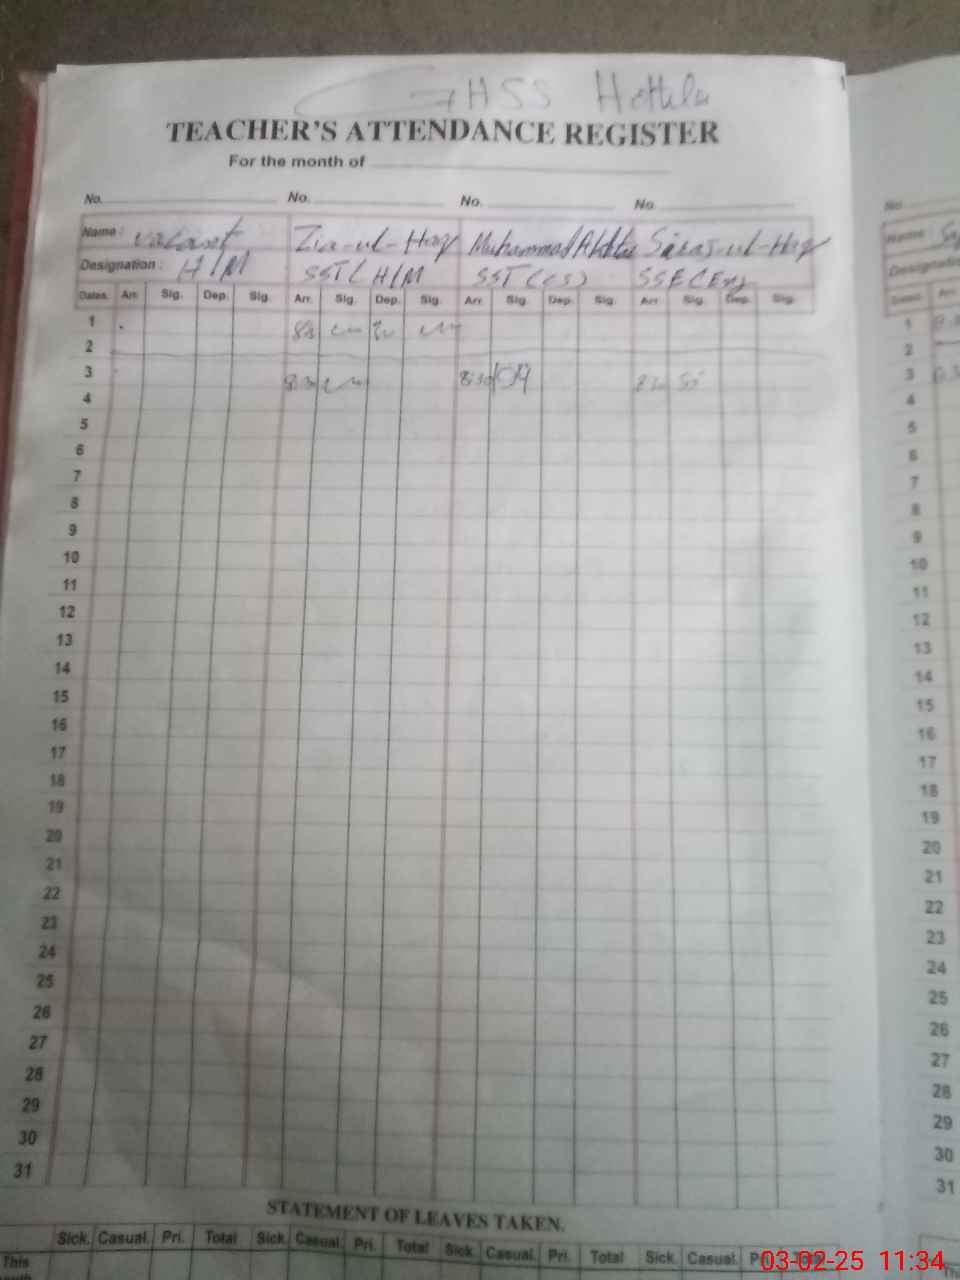 GHSS Hottla
TEACHER'S ATTENDANCE REGISTER
For the month of
No. No. No. No. No
Name: vacant Zia-ul-Haq Muhammad Siraj-ul-Haq Name:
Designation: H/M SST/H/M SST (CS) SSE
Dates. Arr. Sig. Dep. Sig. Arr. Sig. Dep. Sig. Arr. Sig. Dep. Sig. Arr. Sig. Dep. Sig. Dates. Arr.
1 1
2 2
3 8:30 8:30 3
4 4
5 5
6 6
7 7
8 8
9 9
10 10
11 11
12 12
13 13
14 14
15 15
16 16
17 17
18 18
19 19
20 20
21 21
22 22
23 23
24 24
25 25
26 26
27 27
28 28
29 29
30 30
31 31
STATEMENT OF LEAVES TAKEN.
Sick. Casual. Pri. Total Sick. Casual. Pri. Total Sick. Casual. Pri. Total Sick. Casual. Pri. Total
This
03-02-25 11:34